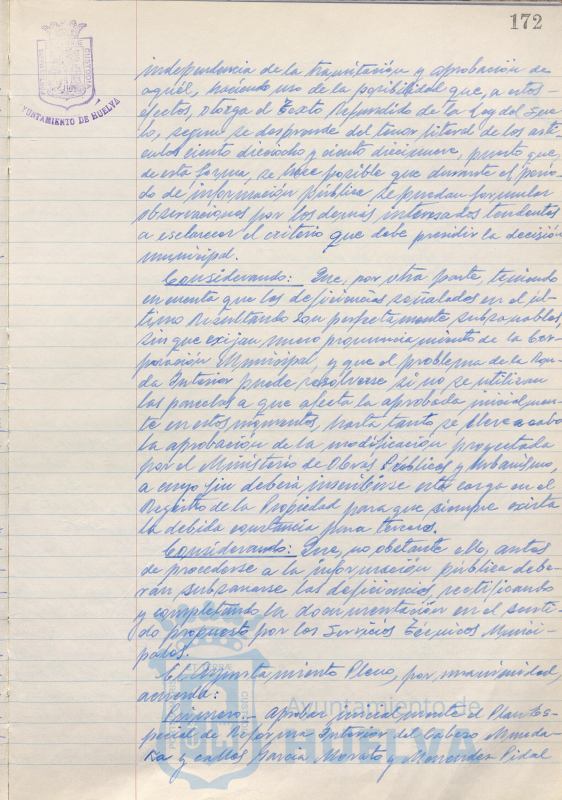 172
AYUNTAMIENTO DE HUELVA
independencia de la tramitación y aprobación de
aquél, haciendo uso de la posibilidad que, a estos
efectos, otorga el Texto Refundido de la Ley del Sue-
lo, según se desprende del tenor literal de los artí-
culos ciento dieciocho y ciento diecinueve, puesto que
de esta forma, se hace posible que durante el perío-
do de información pública se puedan formular
observaciones por los demás interesados tendentes
a esclarecer el criterio que debe presidir la decisión
municipal.
Considerando: Que, por otra parte, teniendo
en cuenta que las deficiencias señaladas en el úl-
timo Resultando son perfectamente subsanables,
sin que exijan nuevo pronunciamiento de la Cor-
poración Municipal, y que el problema de la Ron-
da Interior puede resolverse si no se utilizan
las parcelas a que afecta la aprobada inicialmen-
te en estos momentos, hasta tanto se lleve a cabo
la aprobación de la modificación proyectada
por el Ministerio de Obras Públicas y Urbanismo,
a cuyo fin deberá inscribirse esta carga en el
Registro de la Propiedad para que siempre exista
la debida constancia para terceros.
Considerando: Que, no obstante ello, antes
de procederse a la información pública debe-
rán subsanarse las deficiencias rectificando
y completando la documentación en el senti-
do propuesto por los Servicios Técnicos Munici-
pales.
El Ayuntamiento Pleno, por unanimidad,
acuerda:
Primero.- Aprobar inicialmente el Plan Es-
pecial de Reforma Interior del Cabezo Mondaka
y calles García Morato y Menéndez Pidal
Ayuntamiento de
HUELVA